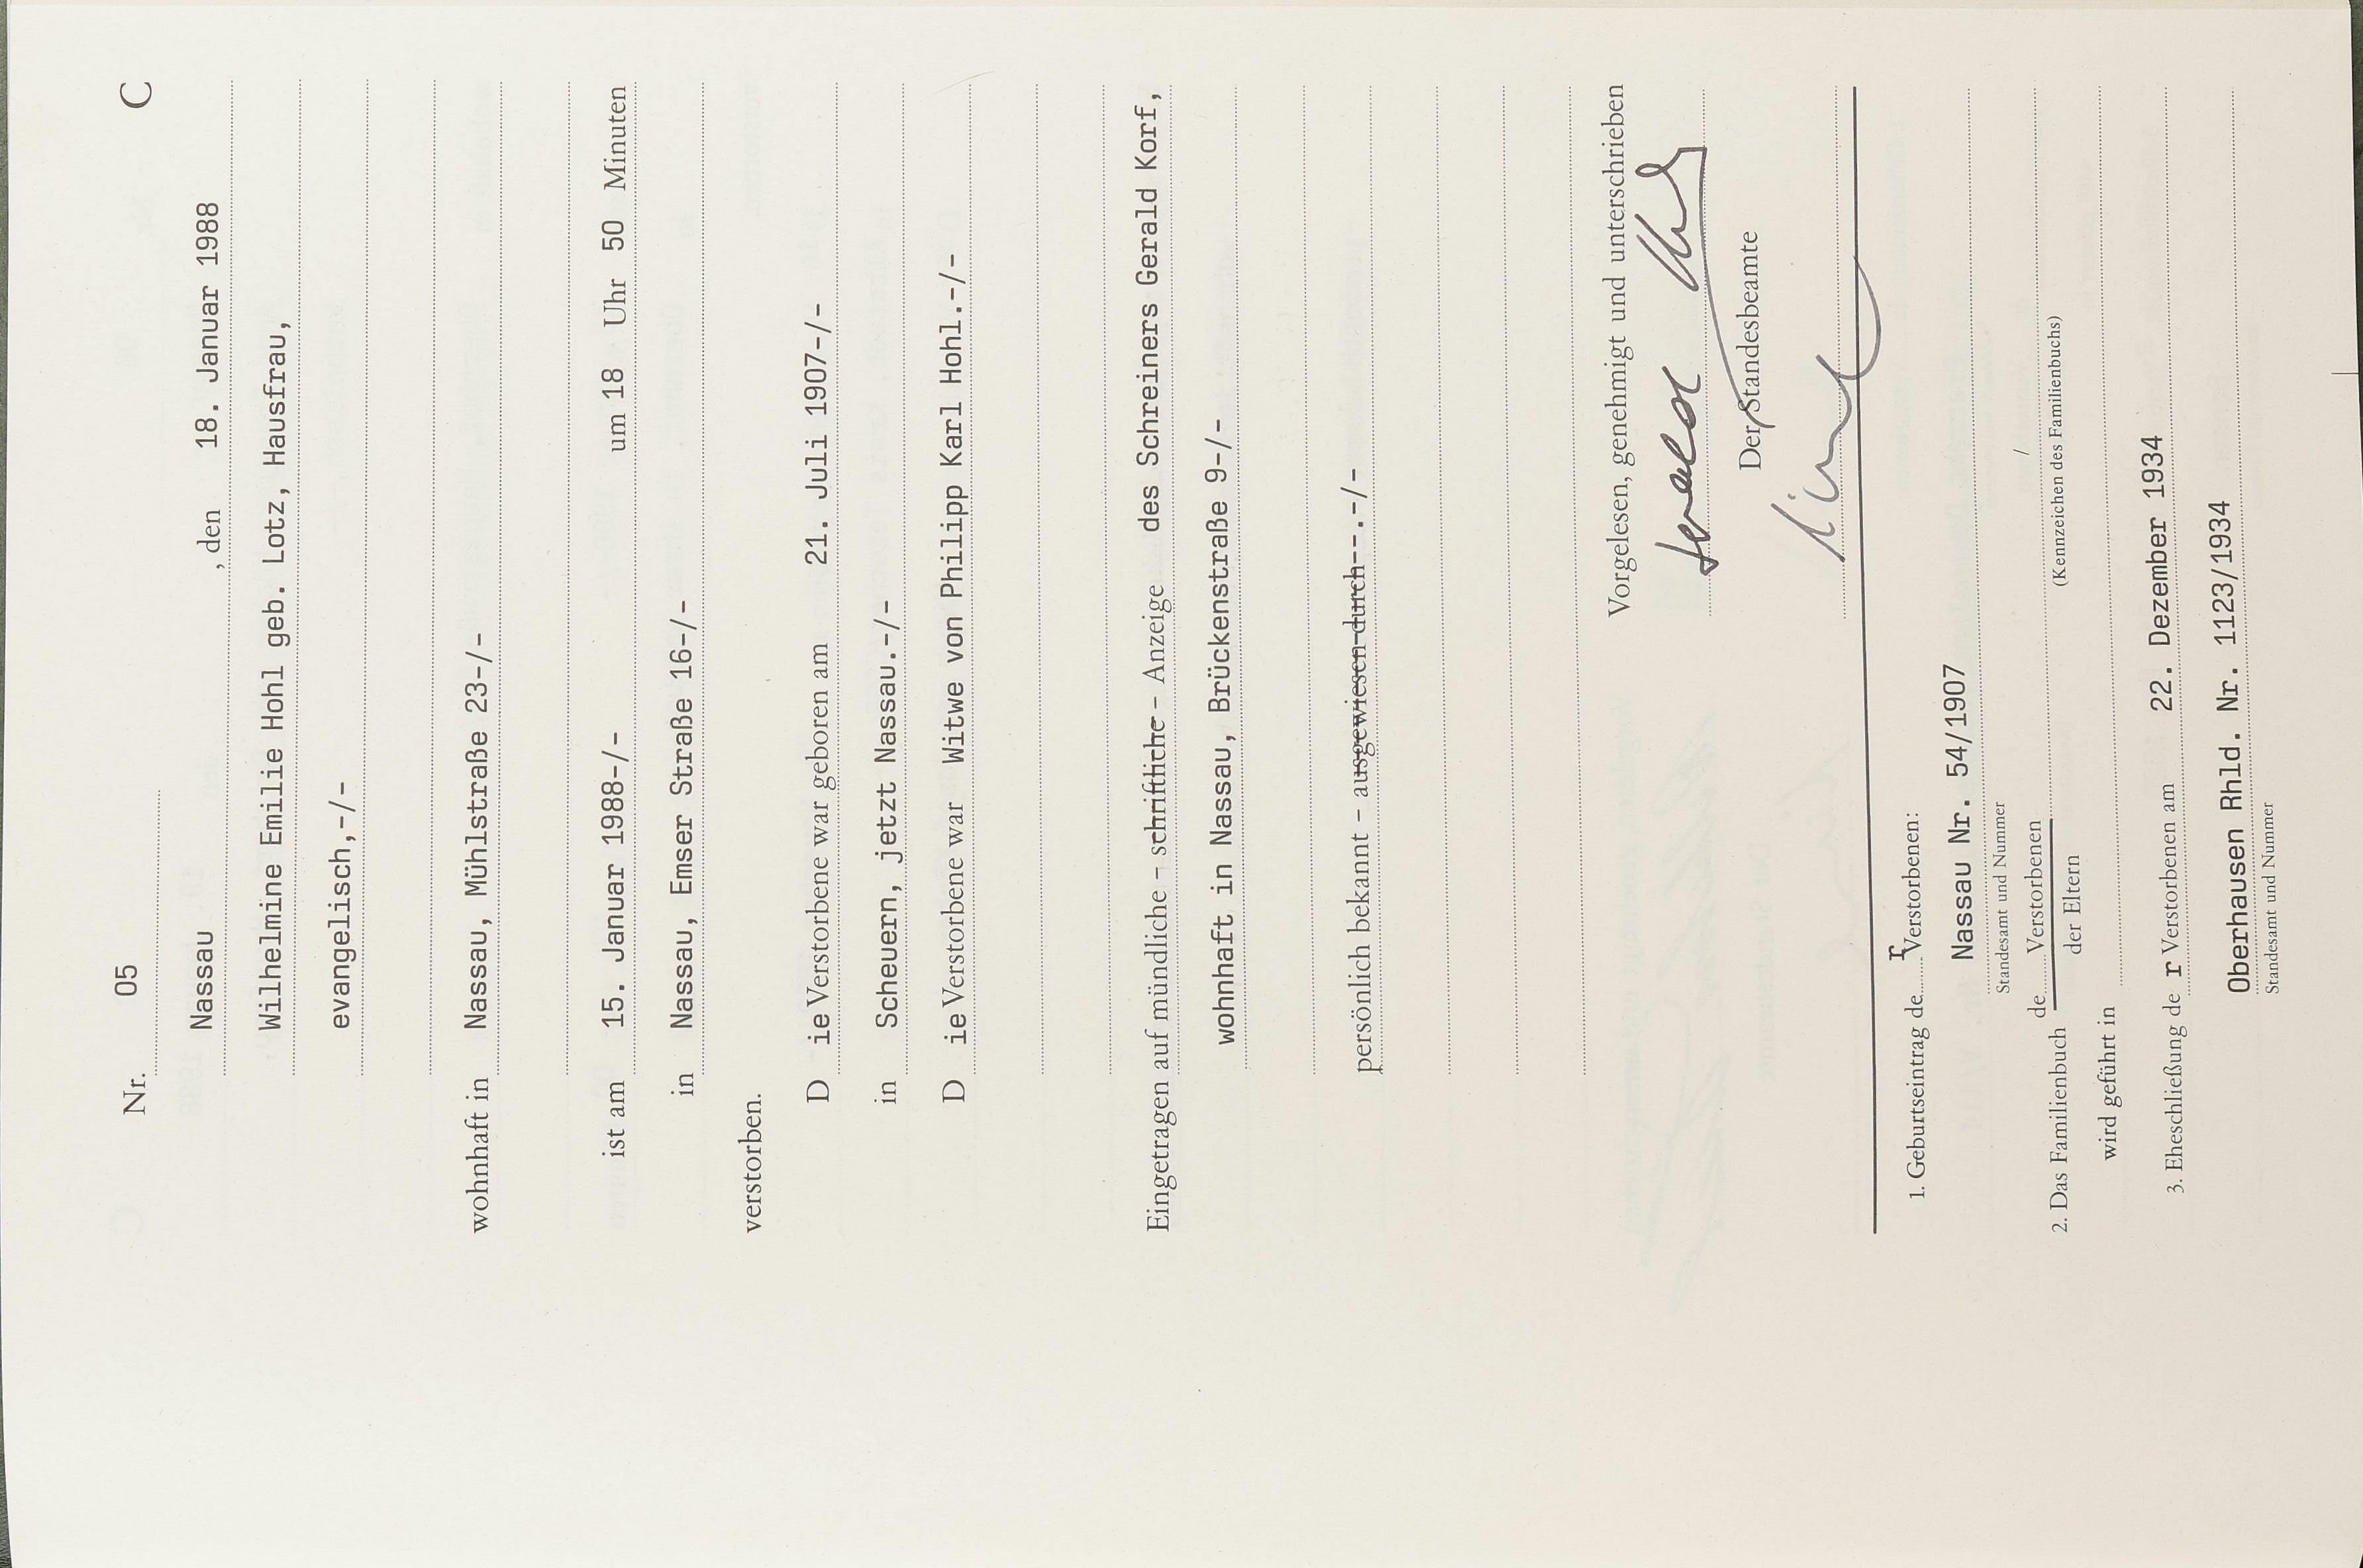 Nr. 05 C
Nassau , den 18. Januar 1988
Wilhelmine Emilie Hohl geb. Lotz, Hausfrau,
evangelisch,-/-
wohnhaft in Nassau, Mühlstraße 23-/-
ist am 15. Januar 1988-/- um 18 Uhr 50 Minuten
in Nassau, Emser Straße 16-/-
verstorben.
D ie Verstorbene war geboren am 21. Juli 1907-/-
in Scheuern, jetzt Nassau.-/-
D ie Verstorbene war Witwe von Philipp Karl Hohl.-/-
Eingetragen auf mündliche – schriftliche – Anzeige des Schreiners Gerald Korf,
wohnhaft in Nassau, Brückenstraße 9-/-
persönlich bekannt – ausgewiesen durch--.-/-
Vorgelesen, genehmigt und unterschrieben
Gerald Korf
Der Standesbeamte
1. Geburtseintrag de r Verstorbenen:
Nassau Nr. 54/1907
Standesamt und Nummer
2. Das Familienbuch de Verstorbenen /
der Eltern (Kennzeichen des Familienbuchs)
wird geführt in
3. Eheschließung de r Verstorbenen am 22. Dezember 1934
Oberhausen Rhld. Nr. 1123/1934
Standesamt und Nummer